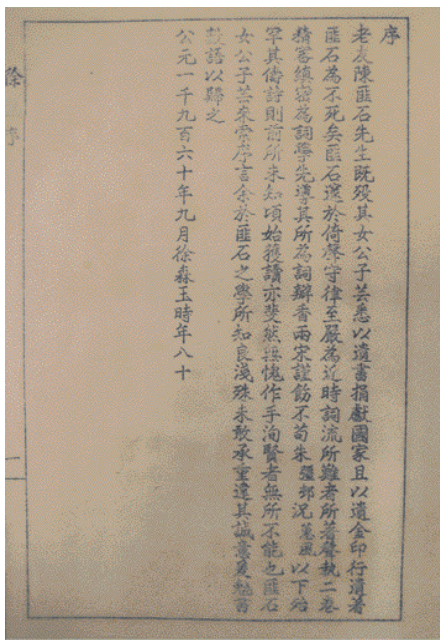 序
老友陳匪石先生既歿其女公子芸悉以遺書捐獻國家且以遺金印行遺著
匪石為不死矣匪石邃於倚聲守律至嚴為近時詞流所難者所著聲執二卷
精審縝密為詞學先導其所為詞瓣香兩宋謹飭不苟朱彊邨況蕙風以下殆
罕其儔詩則前所未知頃始獲讀亦斐然無愧作手洵賢者無所不能也匪石
女公子芸來索序言余於匪石之學所知良淺殊未敢承重違其誠意爰勉
語以歸之
公元一千九百六十年九月徐森玉時年八十
徐序
一